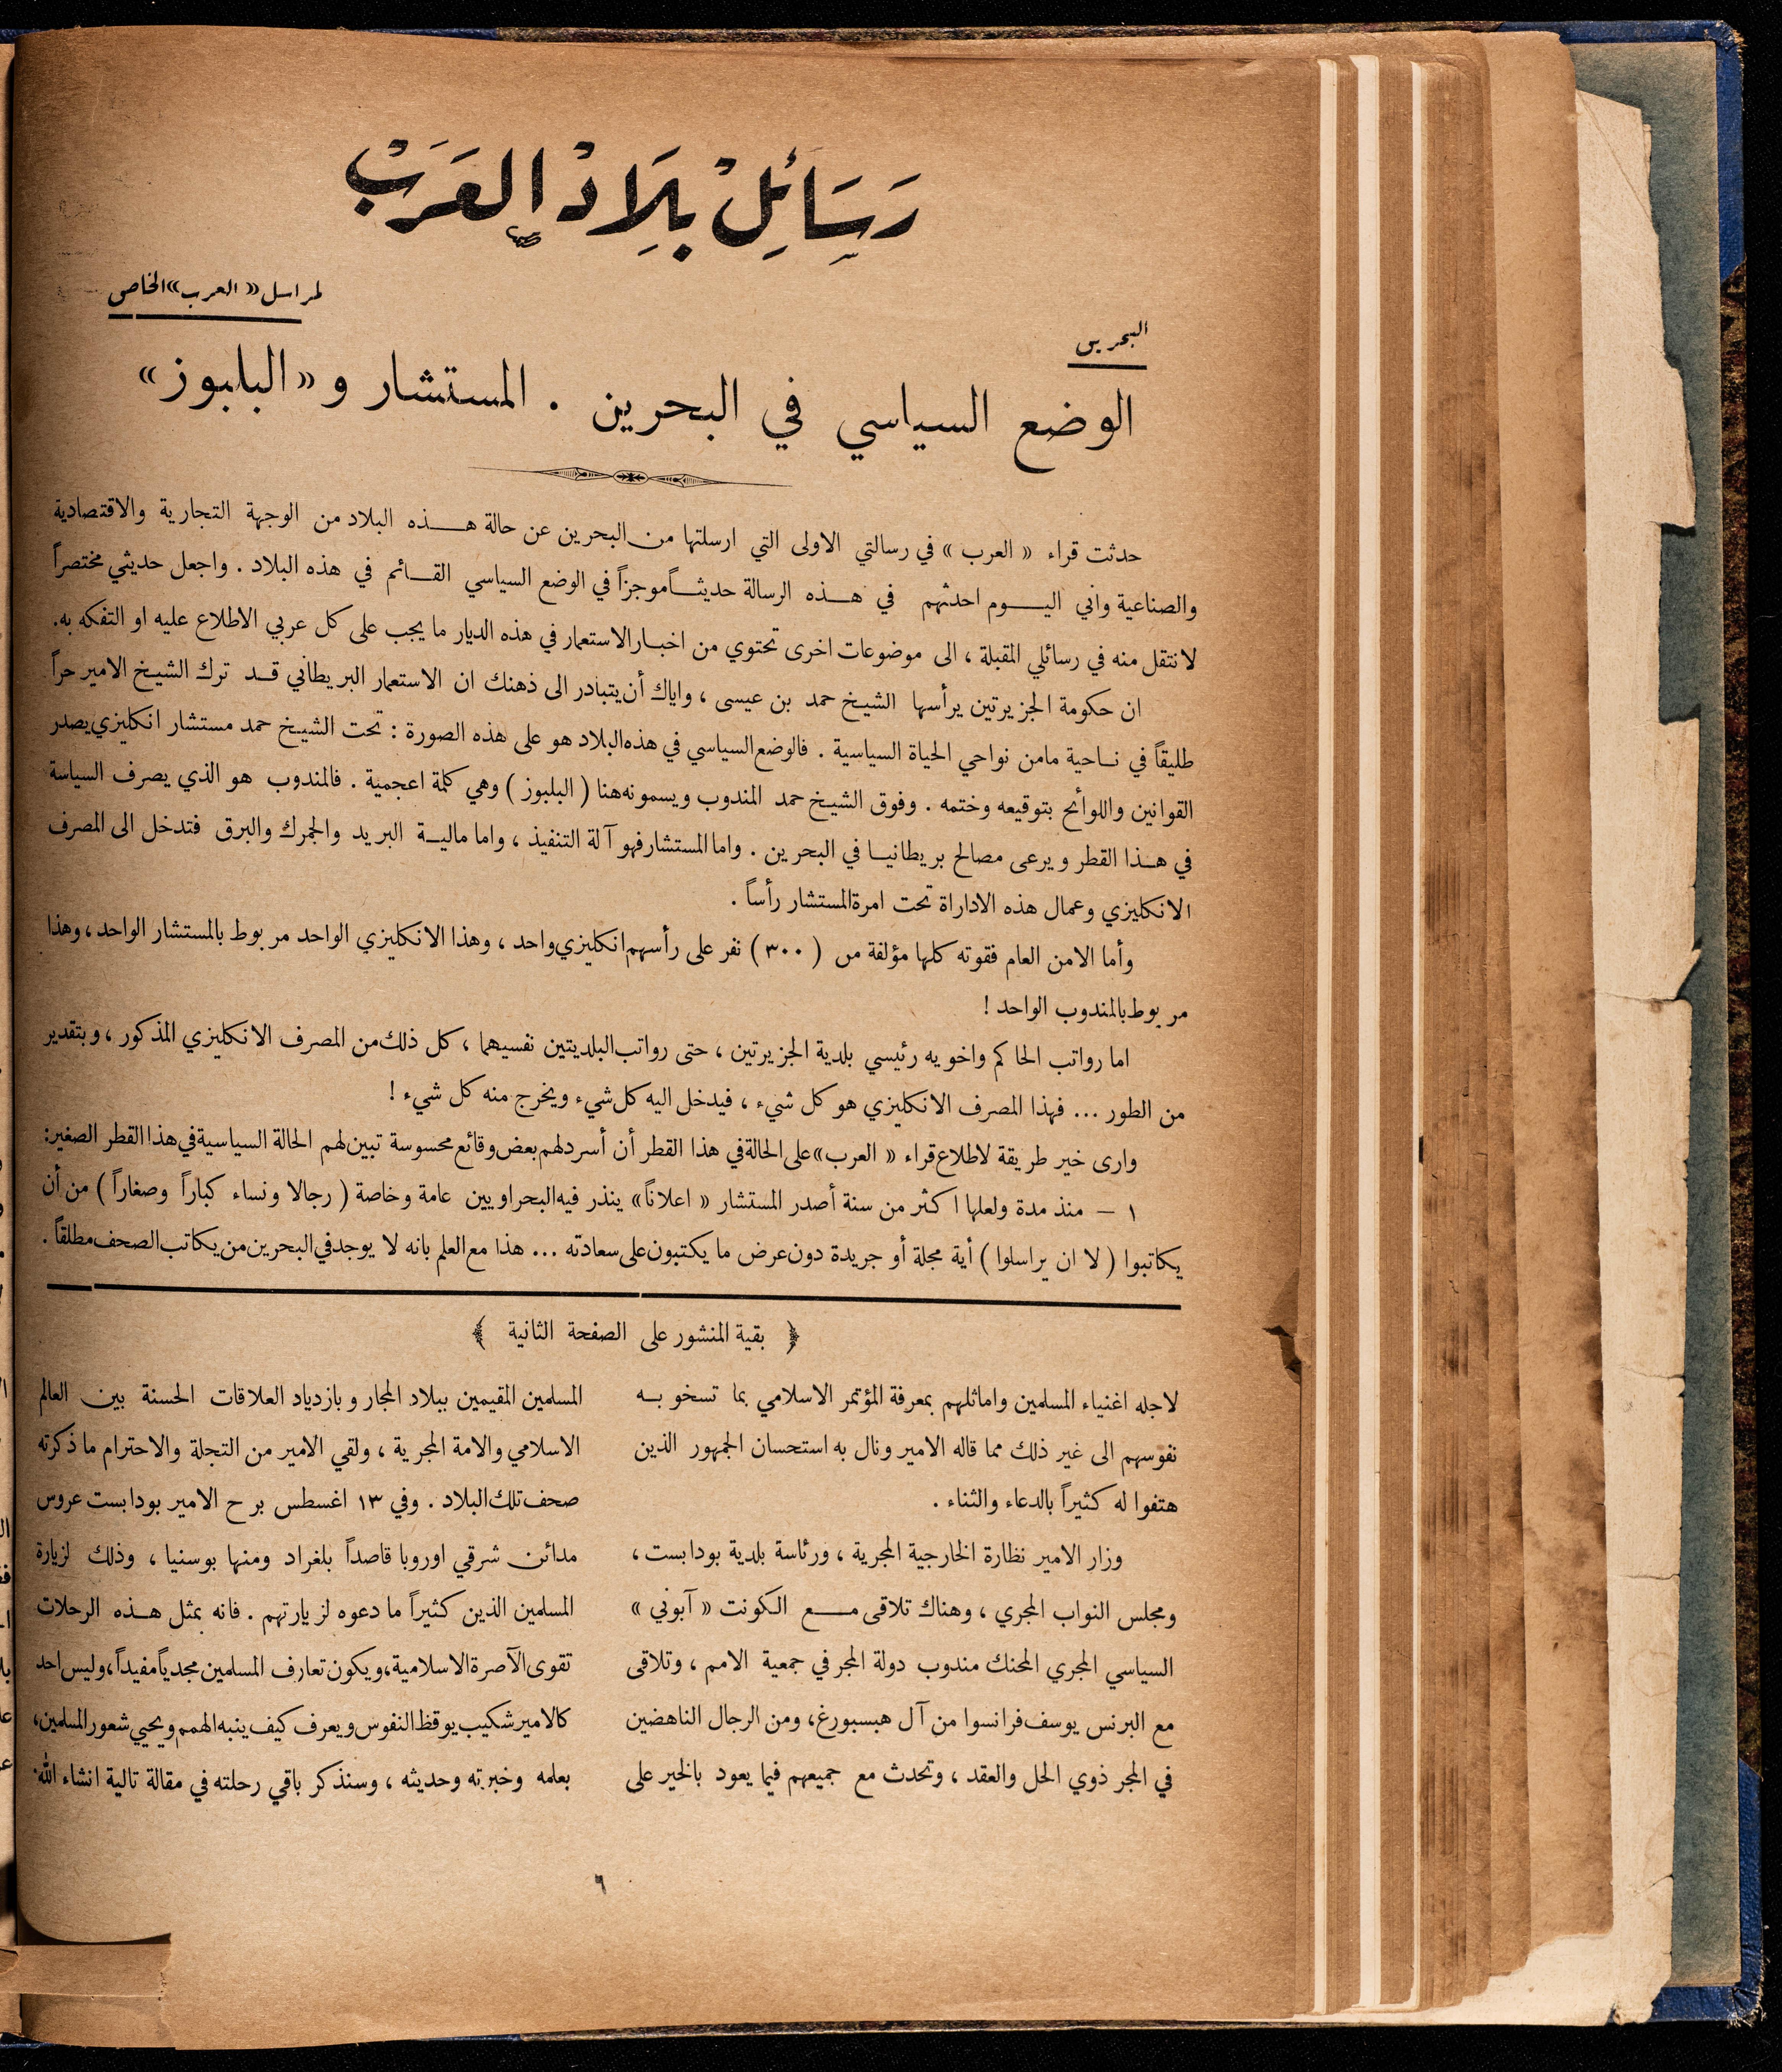 رَسَائِلْ بِلَادْ العَرَبْ
لمراسل «العرب» الخاص
البحرين
الوضع السياسي في البحرين . المستشار و «البلبوز»
حدثت قراء « العرب » في رسالتي الاولى التي ارسلتها من البحرين عن حالة هذه البلاد من الوجهة التجارية والاقتصادية
والصناعية واني اليوم احدثهم في هذه الرسالة حديثاً موجزاً في الوضع السياسي القائم في هذه البلاد . واجعل حديثي مختصراً
لانتقل منه في رسائلي المقبلة ، الى موضوعات اخرى تحتوي من اخبار الاستعمار في هذه الديار ما يجب على كل عربي الاطلاع عليه او التفكه به.
ان حكومة الجزيرتين يرأسها الشيخ حمد بن عيسى ، واياك أن يتبادر الى ذهنك ان الاستعمار البريطاني قد ترك الشيخ الامير حراً
طليقاً في ناحية مامن نواحي الحياة السياسية . فالوضع السياسي في هذه البلاد هو على هذه الصورة : تحت الشيخ حمد مستشار انكليزي يصدر
القوانين واللوائح بتوقيعه وختمه . وفوق الشيخ حمد المندوب ويسمونه هنا ( البلبوز ) وهي كلمة اعجمية . فالمندوب هو الذي يصرف السياسة
في هذا القطر ويرعى مصالح بريطانيا في البحرين . واما المستشار فهو آلة التنفيذ ، واما مالية البريد والجمرك والبرق فتدخل الى المصرف
الانكليزي وعمال هذه الاداراة تحت امرة المستشار رأساً .
وأما الامن العام فقوته كلها مؤلفة من ( ٣٠٠ ) نفر على رأسهم انكليزي واحد ، وهذا الانكليزي الواحد مربوط بالمستشار الواحد ، وهذا
مربوط بالمندوب الواحد !
اما رواتب الحاكم واخويه رئيسي بلدية الجزيرتين ، حتى رواتب البلديتين نفسيهما ، كل ذلك من المصرف الانكليزي المذكور ، وبتقدير
من الطور ... فهذا المصرف الانكليزي هو كل شيء ، فيدخل اليه كل شيء ويخرج منه كل شيء !
وارى خير طريقة لاطلاع قراء « العرب » على الحالة في هذا القطر أن أسرد لهم بعض وقائع محسوسة تبين لهم الحالة السياسية في هذا القطر الصغير:
١ — منذ مدة ولعلها اكثر من سنة أصدر المستشار « اعلاناً » ينذر فيه البحراويين عامة وخاصة ( رجالا ونساء كباراً وصغاراً ) من أن
يكاتبوا ( لا ان يراسلوا ) أية مجلة أو جريدة دون عرض ما يكتبون على سعادته ... هذا مع العلم بانه لا يوجد في البحرين من يكاتب الصحف مطلقاً .
﴿ بقية المنشور على الصفحة الثانية ﴾
لاجله اغنياء المسلمين واماثلهم بمعرفة المؤتمر الاسلامي بما تسخو به
نفوسهم الى غير ذلك مما قاله الامير ونال به استحسان الجمهور الذين
هتفوا له كثيراً بالدعاء والثناء .
وزار الامير نظارة الخارجية المجرية ، ورئاسة بلدية بودابست ،
ومجلس النواب المجري ، وهناك تلاقى مع الكونت « آبوني »
السياسي المجري المحنك مندوب دولة المجر في جمعية الامم ، وتلاقى
مع البرنس يوسف فرانسوا من آل هبسبورغ، ومن الرجال الناهضين
في المجر ذوي الحل والعقد ، وتحدث مع جميعهم فيما يعود بالخير على
المسلمين المقيمين ببلاد المجار وبازدياد العلاقات الحسنة بين العالم
الاسلامي والامة المجرية ، ولقي الامير من التجلة والاحترام ما ذكرته
صحف تلك البلاد . وفي ١٣ اغسطس برح الامير بودابست عروس
مدائن شرقي اوروبا قاصداً بلغراد ومنها بوسنيا ، وذلك لزيارة
المسلمين الذين كثيراً ما دعوه لزيارتهم . فانه بمثل هذه الرحلات
تقوى الآصرة الاسلامية، ويكون تعارف المسلمين مجدياً مفيداً، وليس احد
كالامير شكيب يوقظ النفوس ويعرف كيف ينبه الهمم ويحيي شعور المسلمين،
بعلمه وخبرته وحديثه ، وسنذكر باقي رحلته في مقالة تالية انشاء الله.
٦